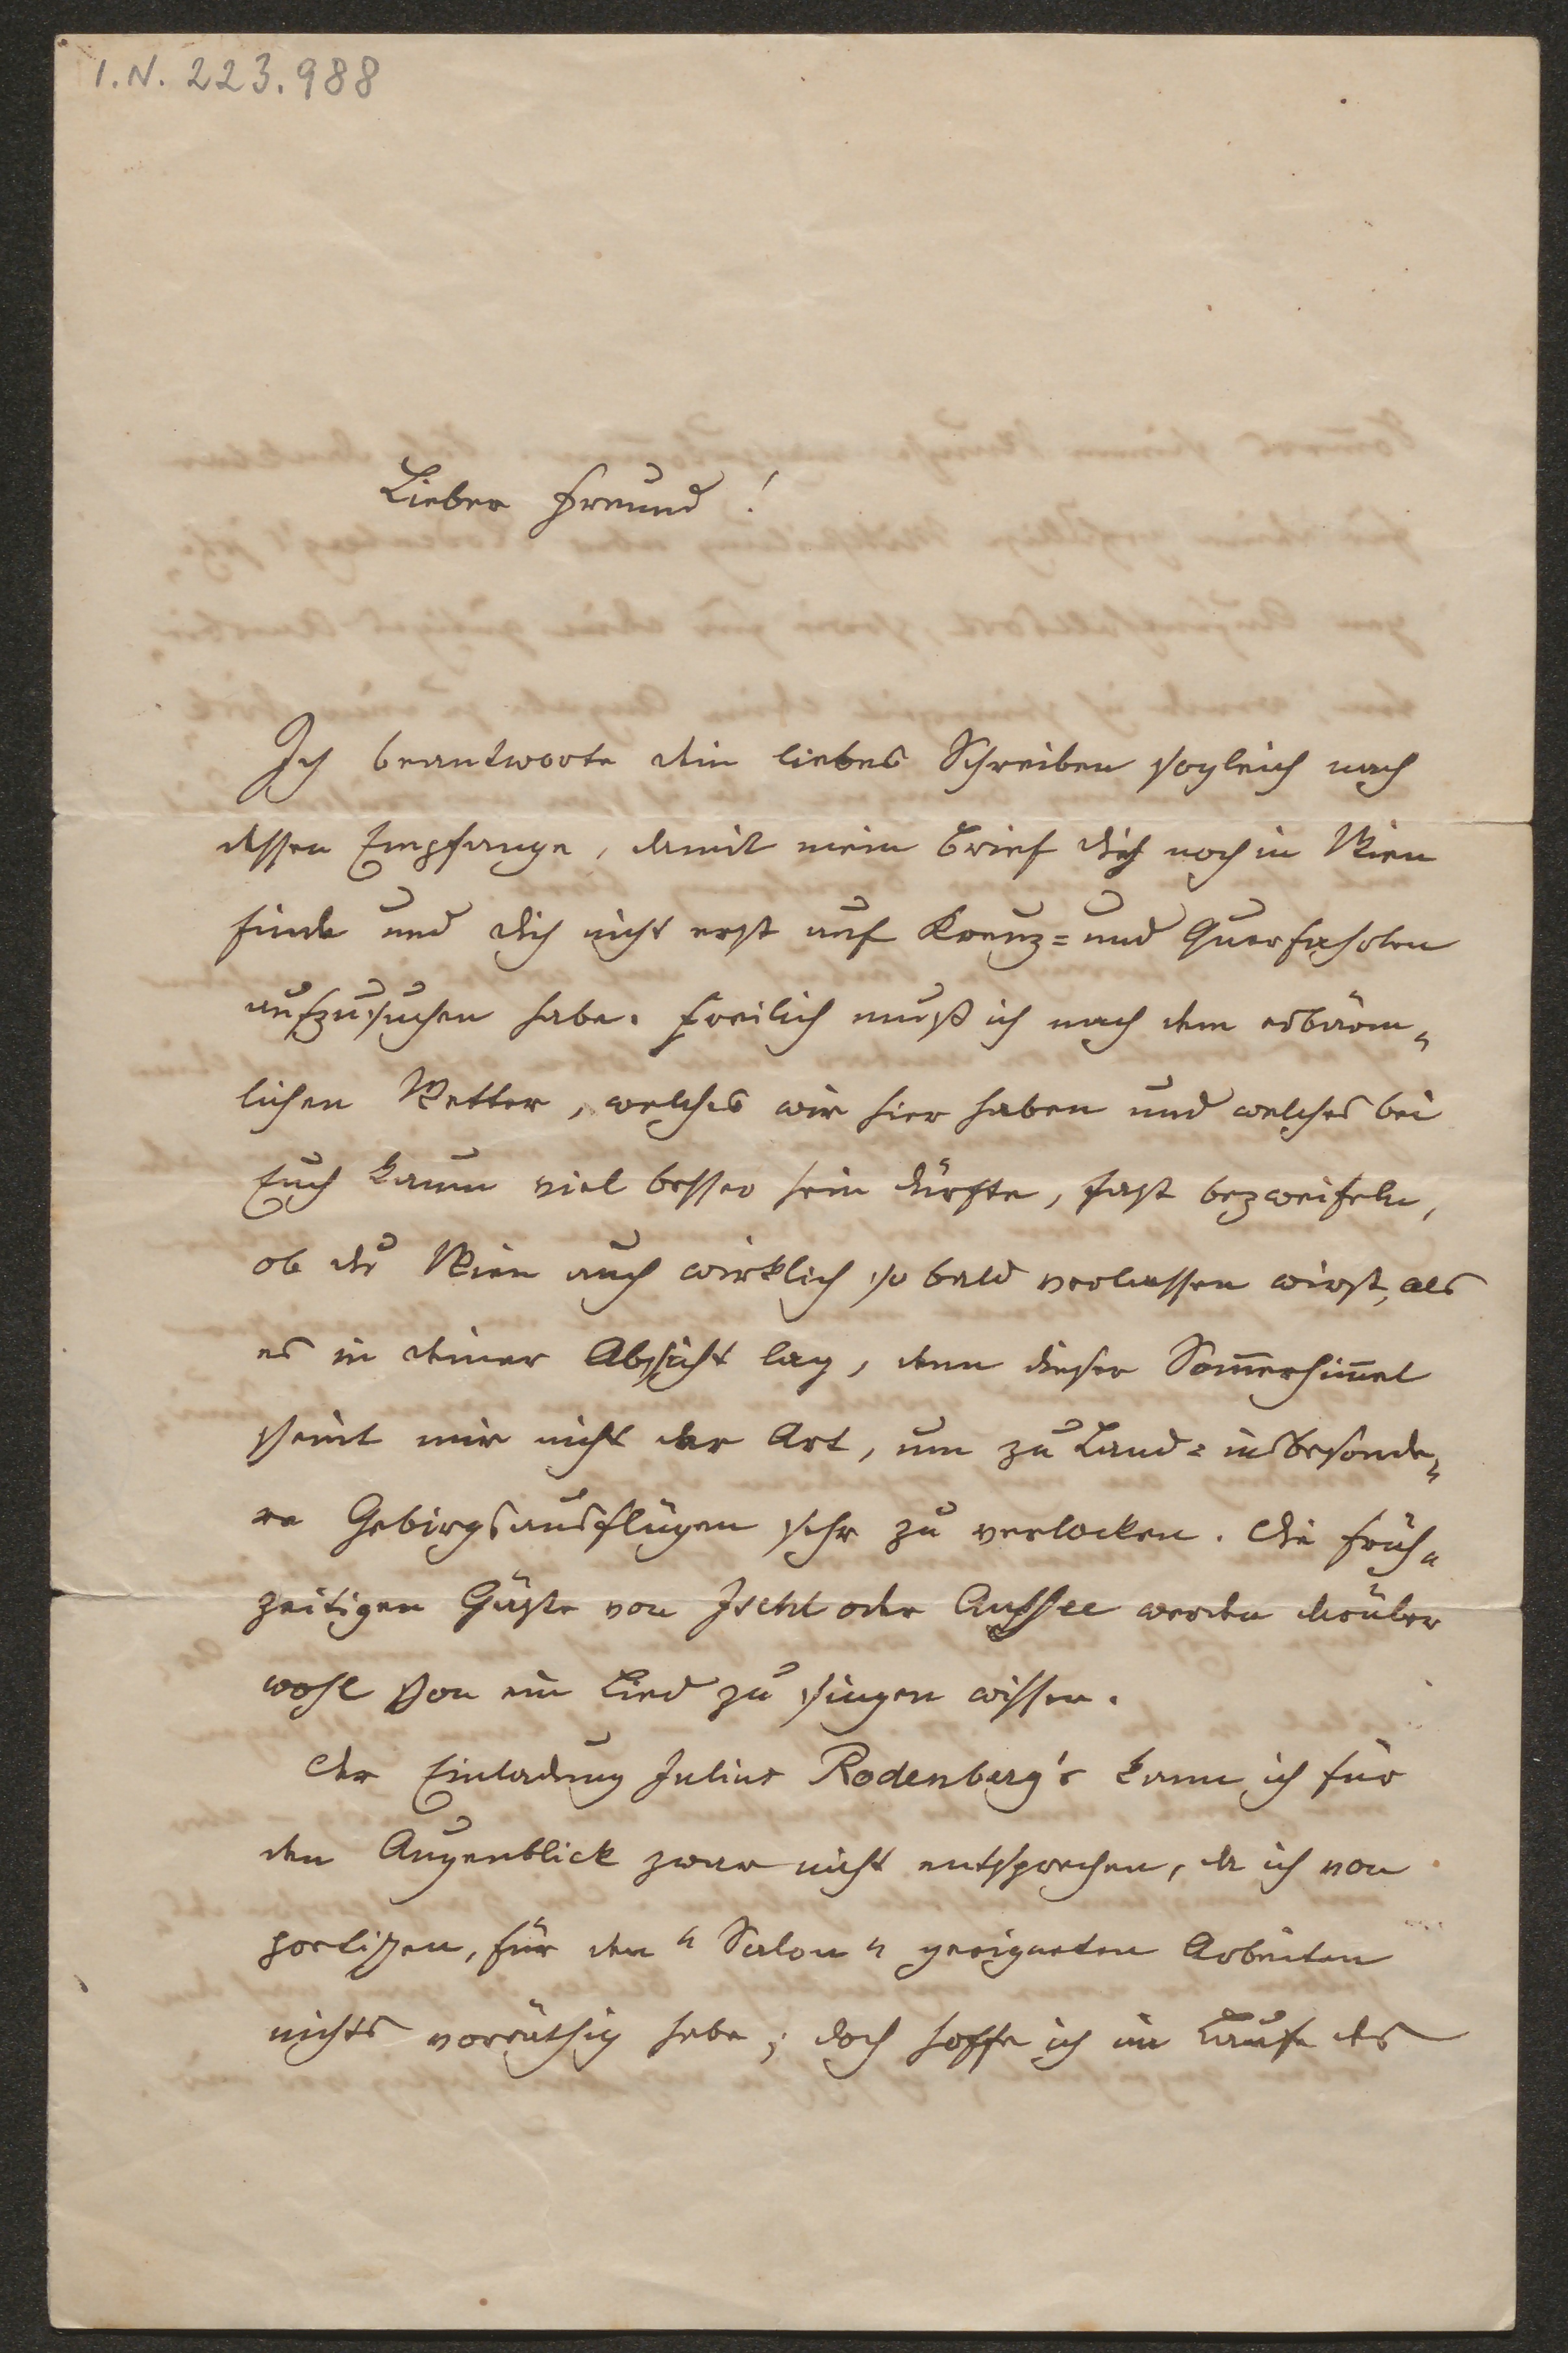 I.N. 223.988
Lieber Freund!
Ich beantworte dein liebes Schreiben sogleich nach
dessen Empfange, damit mein Brief dich noch in Wien
finde und dich nicht erst auf Kreuz= und Querfahrten
aufzusuchen habe. Freilich muß ich nach dem erbärm„
lichen Wetter, welches wir hier haben und welches bei
Euch kaum viel besser sein dürfte, fast bezweifeln,
ob du Wien auch wirklich so bald verlassen wirst, als
es in deiner Absicht lag, denn dieser Som̄erhim̄el
scheint mir nicht der Art, um zu Land= insbesonde„
re Gebirgsausflügen sehr zu verlocken. Die früh„
zeitigen Gäste von Ischl oder Aussee werden darüber
wohl schon ein Lied zu singen wissen.
Der Einladung Julius Rodenberg's kann ich für
den Augenblick zwar nicht entsprechen, da ich von
poetischen, für den "Salon" geeigneten Arbeiten
nichts vorräthig habe; doch hoffe ich im Laufe des